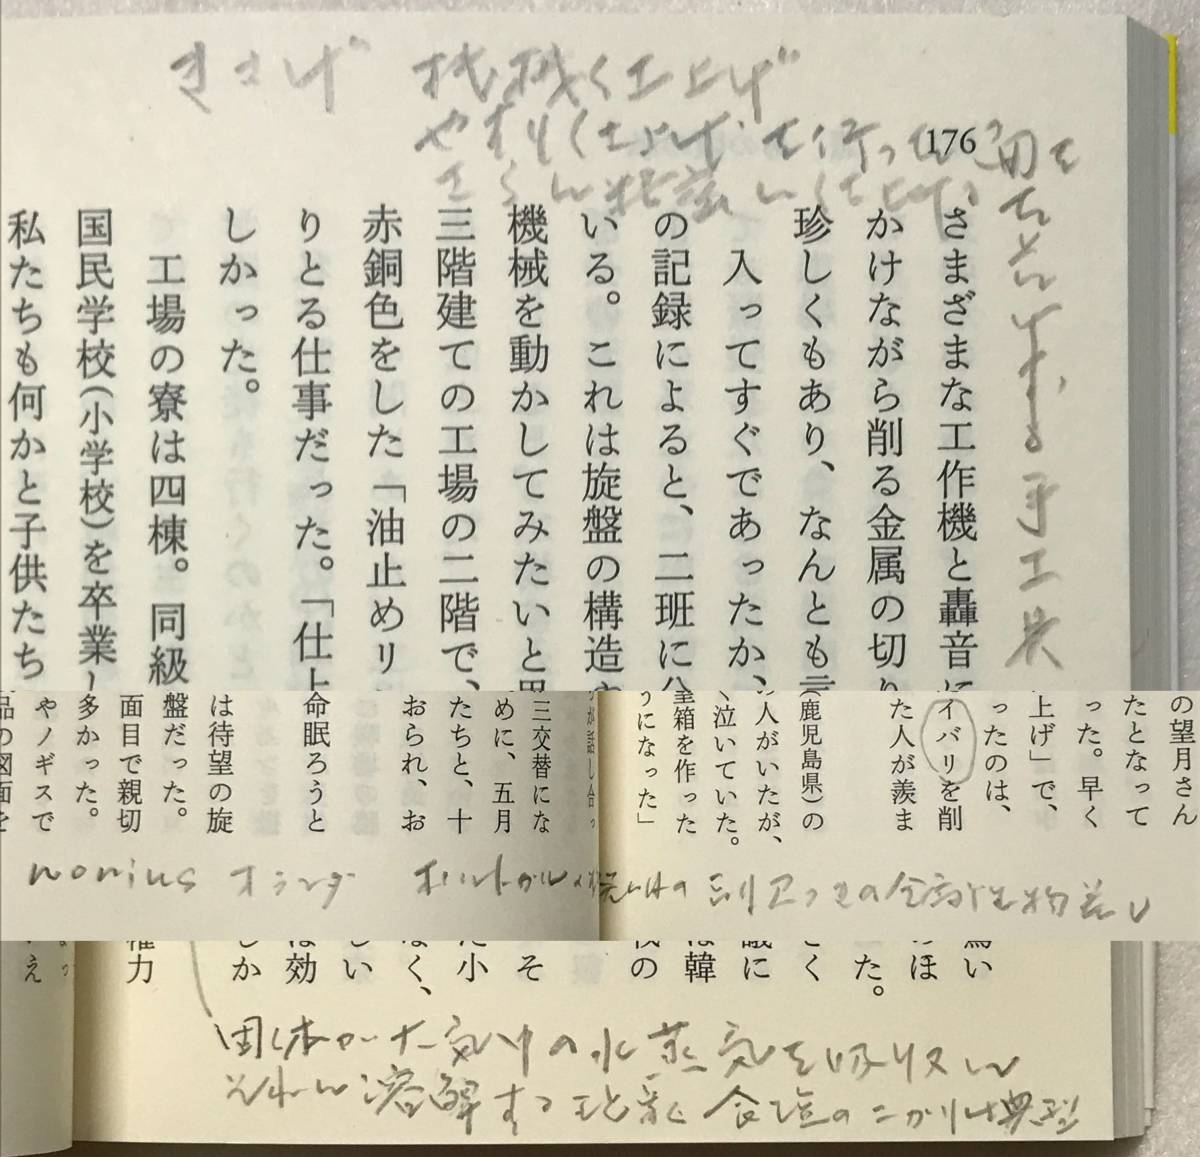 きさげ 機械仕上げ
やすり仕上げを行った面を
さらに精密に仕上げ
手工具
176
さまざまな工作機と轟音に
かけながら削る金属の切り
珍しくもあり、なんとも言
入ってすぐであったか、
の記録によると、二班に分
いる。これは旋盤の構造や
機械を動かしてみたいと思
三階建ての工場の二階で、
赤銅色をした「油止めリ
りとる仕事だった。「仕上
しかった。
工場の寮は四棟。同級
国民学校(小学校)を卒業し
私たちも何かと子供たち
の望月さん
たとなって
った。早く
上げ」で、
ったのは、
イバリを削
た人が羨ま
(鹿児島県)の
人がいたが、
泣いていた。
箱を作った
うになった」
が話し合っ
三交替にな
めに、五月
たちと、十
おられ、お
命眠ろうと
は待望の旋
盤だった。
面目で親切
多かった。
やノギスで
品の図面を
nonius オランダ ポルトガル 副尺つきの金属性物差し
い
のほ
た。
とく
議に
は韓
の
そ
た小
なく、
しい
は効
しか
権力
え
固体が大気中の水蒸気を吸収し
それに溶解すること 食塩のニガリは典型